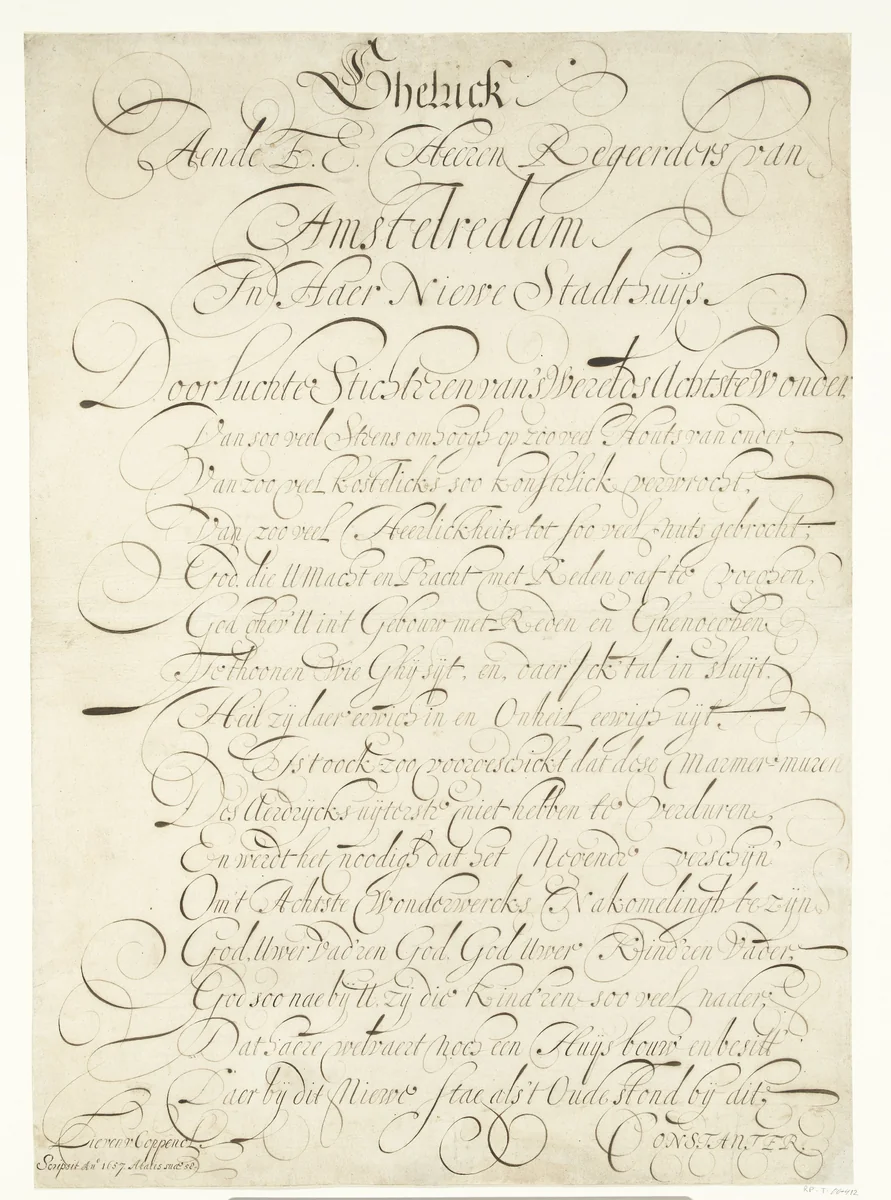 Gheluck
Aende E. E. Heeren Regeerders van
Amstelredam
In Haer Niewe Stadthuijs.
Doorluchte Stichteren van 's Werelds Achtste Wonder,
Van soo veel Steens omhoogh op zoo veel Houts van onder,
Van zoo veel kostelicks soo konstelick verwrocht,
Van zoo veel Heerlickheits tot soo veel nuts gebrocht;
God, die U Macht en Pracht met Reden gaf te voeghen,
God ghev' U in't Gebouw met Reden en Ghenoeghen
Te thoonen wie Ghij sijt, en, daer Ick 't al in sluijt,
Heil zij daer eewich in en Onheil eewigh uijt.
Is't oock zoo voorgeschickt dat dese Marmer-muren
Des Aerdrijcks uijterste niet hebben te verduren,
En werdt het noodigh dat het Negende verschijn'
Om't Achtste Wonderwercks Nakomelingh te zijn,
God, Uwer Vad'ren God, God Uwer Kind'ren Vader,
God soo nae bij U, zij die Kind'ren soo veel nader,
Dat haere welvaert noch een Huijs bouw' en besitt'
Daer bij dit Niewe stae als't Oude stond bij dit.
CONSTANTER.
Lieven v Coppenol.
Scripsit Anº 1657. Ætatis suæ 58.